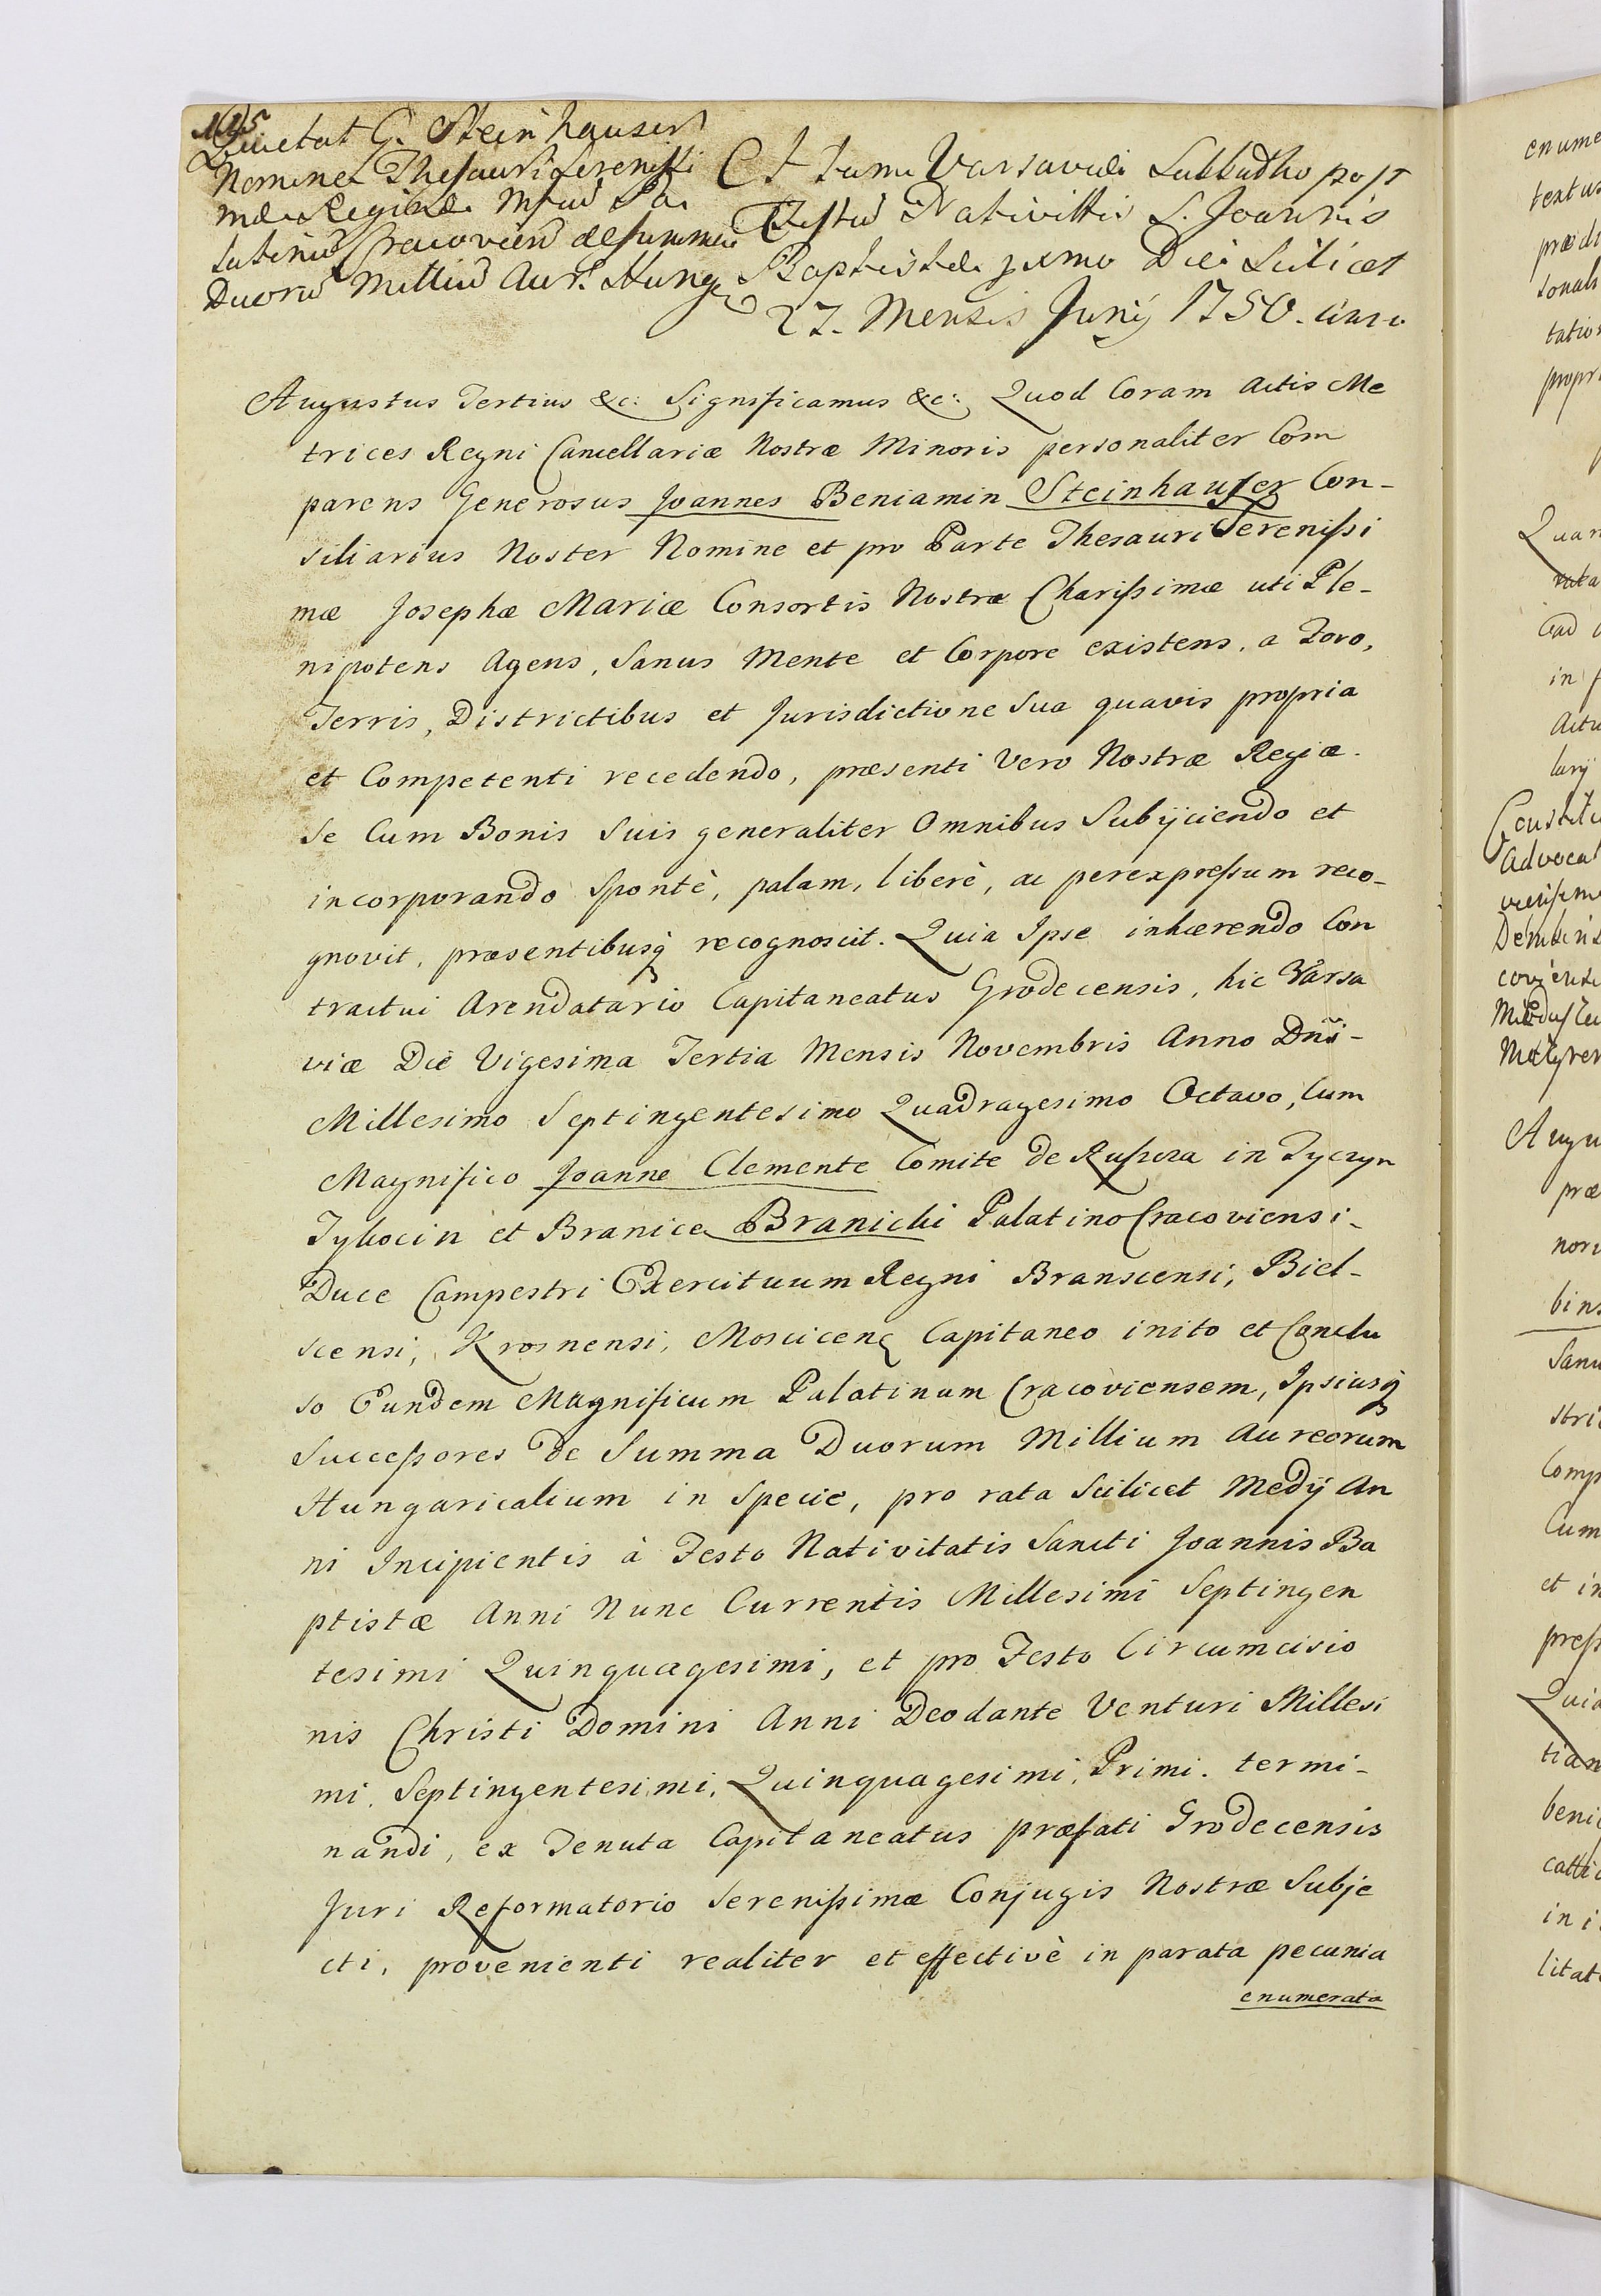 115
Quietat G. Steinhauser
Nomine Thesauri Serenissi
mæ Reginæ Mfcũ Pa
latinũ Cracovien de summa
Duorũ Milliũ Aur. Hung.
Actum Varsaviæ Sabbatho post
Festũ Nativittis S. Joannis
Baptistæ pxmo Die Scilicet
27. Mensis Junij 1750. anno
Augustus Tertius &c: Significamus &c: Quod Coram Actis Me
trices Regni Cancellariæ Nostræ Minoris personaliter Com
parens Generosus Joannes Beniamin Steinhauser Con-
siliarius Noster Nomine et pro Parte Thesauri Serenissi
mæ Josephæ Mariæ Consortis Nostræ Charissimæ uti Ple-
nipotens Agens, Sanus Mente et Corpore existens, a Foro,
Terris, Districtibus et Jurisdictione Sua quavis propria
et Competenti recedendo, præsenti Vero Nostræ Regiæ.
Se Cum Bonis Suis generaliter Omnibus Subijciendo et
incorporando Spontè, palam, liberè, ac perexpressum reco-
gnovit, præsentibusq recognoscit. Quia Ipse inhærendo Con
tractui Arendatario Capitaneatus Grodecensis, hic Varsa
viæ Die Vigesima Tertia Mensis Novembris Anno Dñi-
Millesimo Septingentesimo Quadragesimo Octavo, Cum
Magnifico Joanne Clemente Comite de Ruszcza in Tyczyn
Tykocin et Branice Branicki Palatino Cracoviensi-
Duce Campestri Exercituum Regni Branscensi, Biel-
scensi, Krosnensi, Moscicen Capitaneo inito et Conclu
so Eundem Magnificum Palatinum Cracoviensem, Ipsiusq
Successores de Summa Duorum Millium Aureorum
Hungaricalium in Specie, pro rata Scilicet Medij An
ni Incipientis à Festo Nativitatis Sancti Joannis Ba
ptistæ Anni Nunc Currentis Millesimi Septingen
tesimi Quinquagesimi, et pro Festo Circumcisio
nis Christi Domini Anni Deodante Venturi Millesi
mi. Septingentesimi. Quinquagesimi. Primi. termi-
nandi, ex Tenuta Capitaneatus præfati Grodecensis
Juri Reformatorio Serenissimæ Conjugis Nostræ Subje
cti, provenienti realiter et effectivè in parata pecunia
enumerata
enume
textus
præd
sonali
tatio
propri
Quan
Cad
in f
Actu
larij
Constitu
Advocat
Augu
præ
nori
bins
Sanu
stri
Comp
Cum
et in
press
Quia
tian
beni
in i
litat